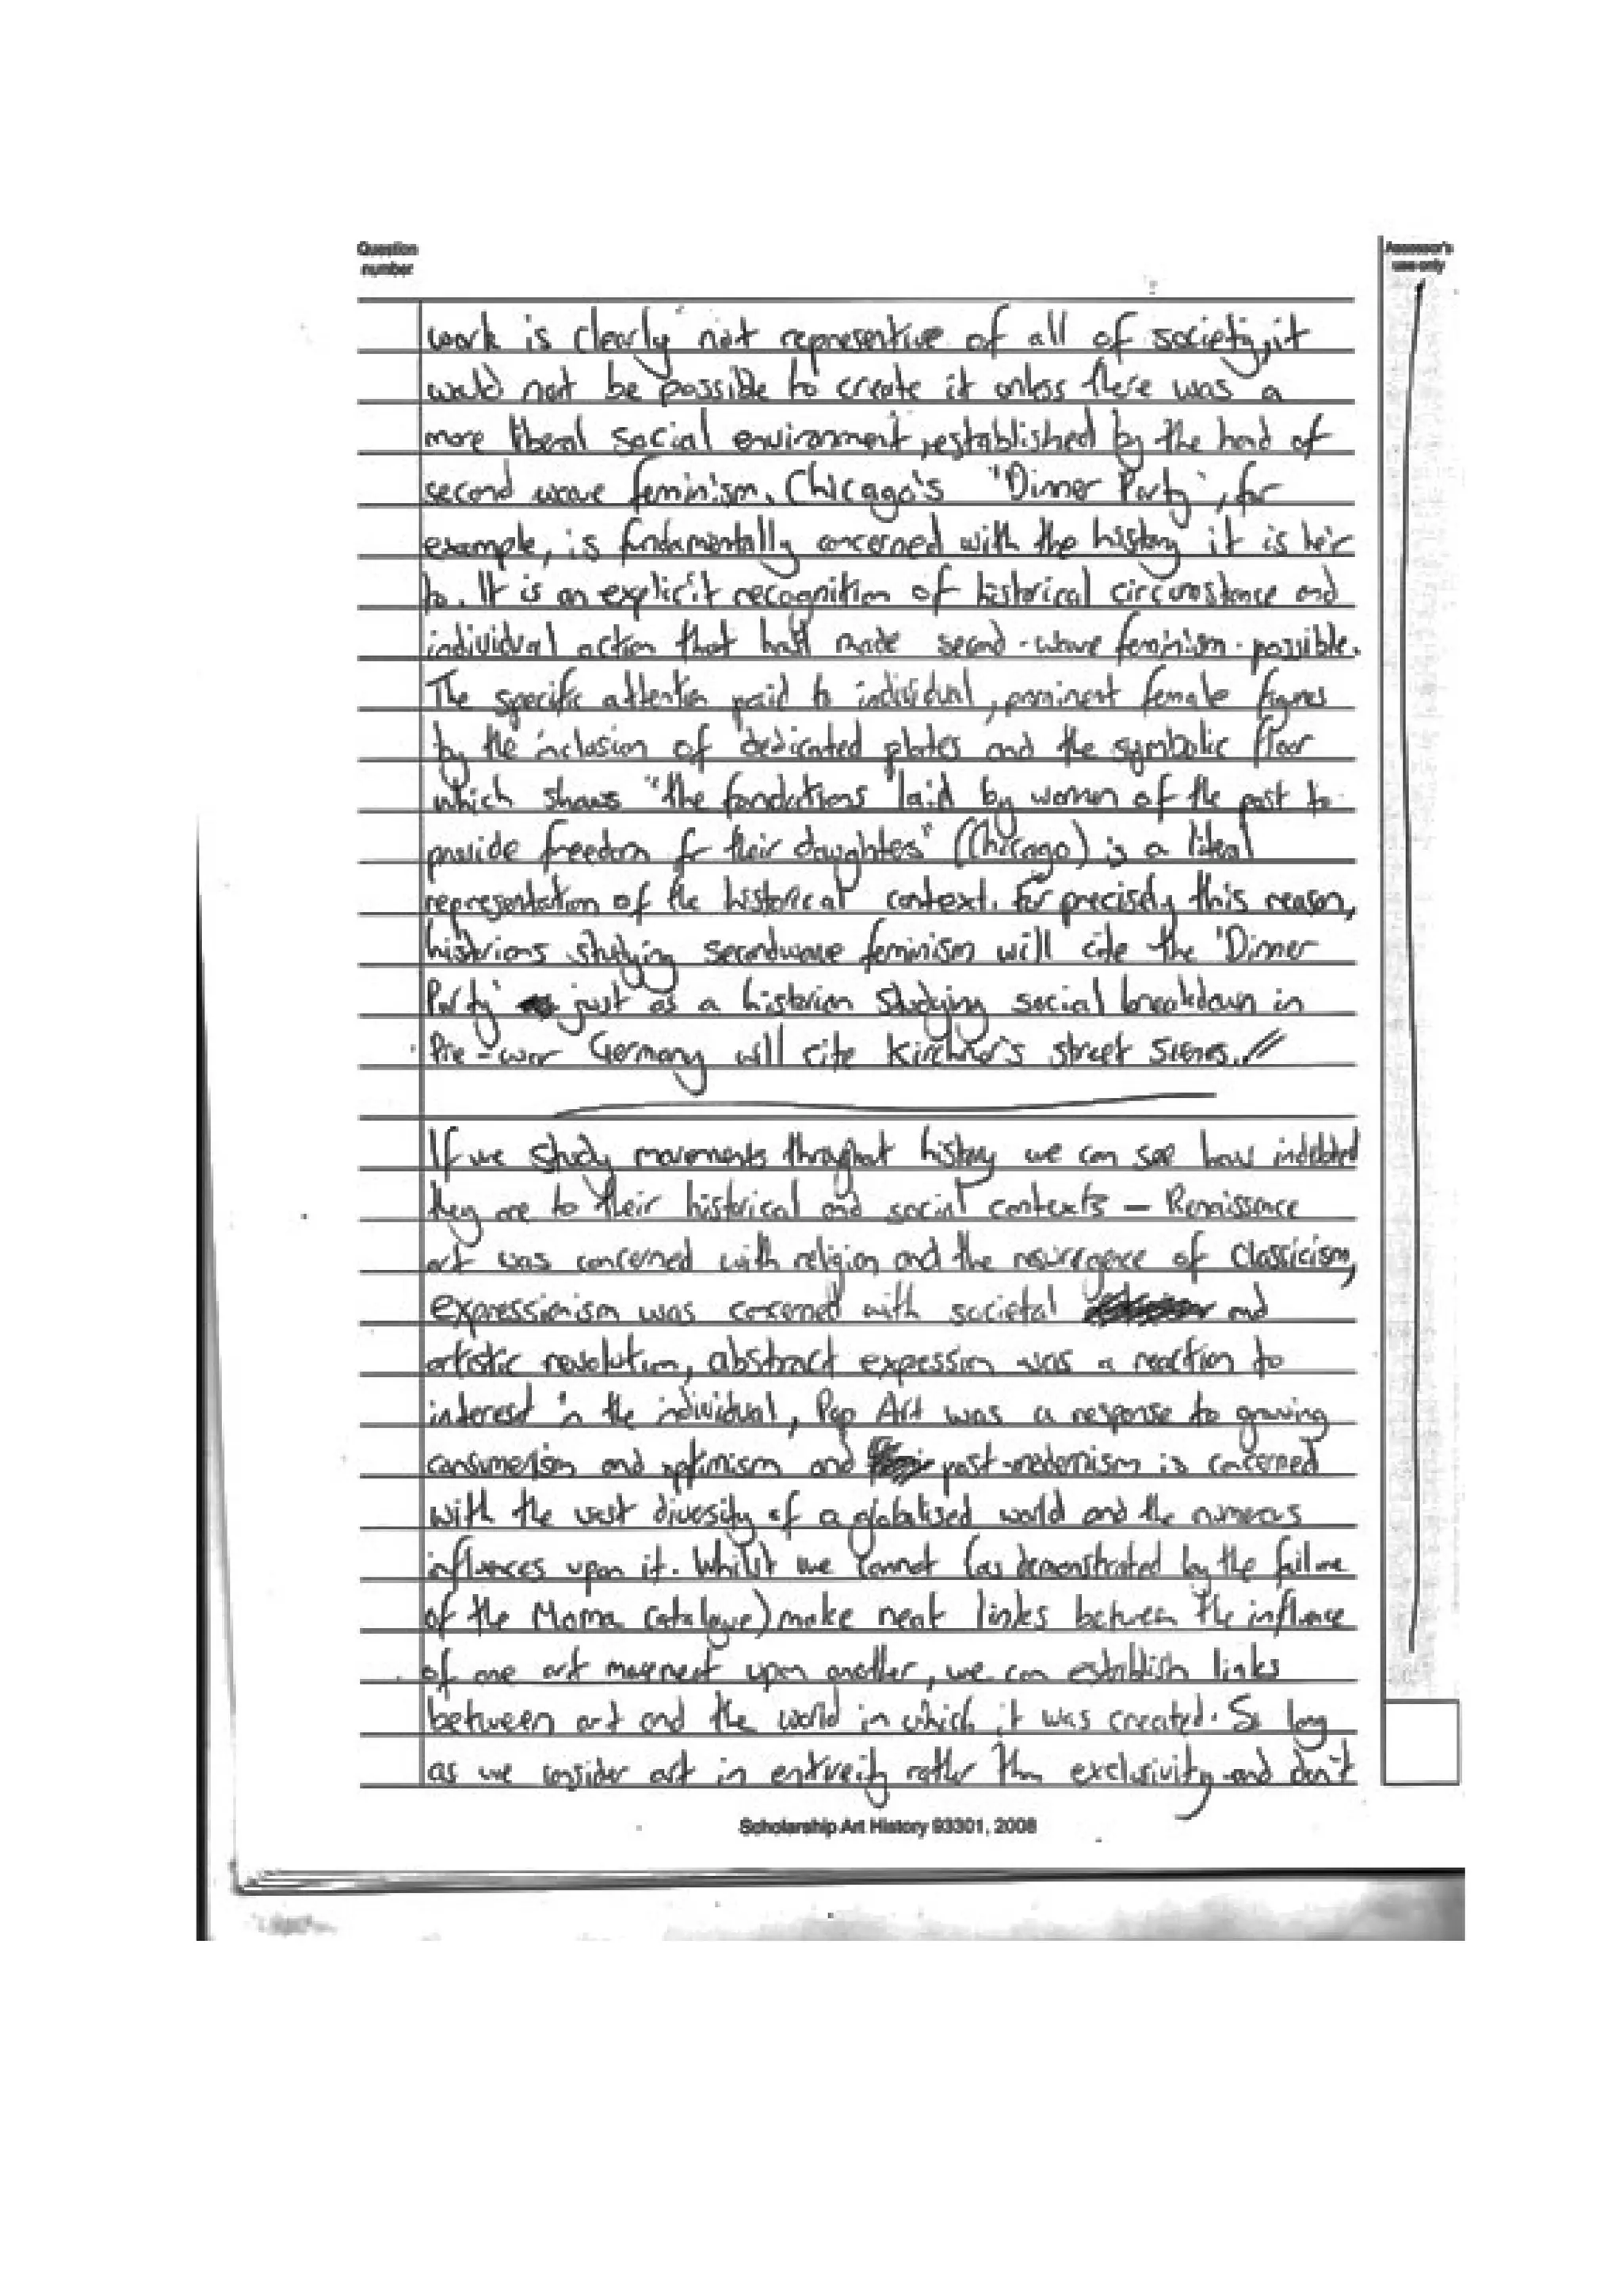 Question
number
Assessor's
use only
work is clearly not representive of all of society, it
would not be possible to create it unless there was a
more liberal social environment, established by the hand of
second wave feminism. Chicago's 'Dinner Party', for
example, is fundamentally concerned with the history it is heir
to. It is an explicit recognition of historical circumstance and
individual action that had made second-wave feminism possible.
The specific attention paid to individual, prominent female figures
by the inclusion of dedicated plates and the symbolic floor
which shows "the foundations laid by women of the past to
provide freedom for their daughters" (Chicago) is a literal
representation of the historical context. For precisely this reason,
historians studying secondwave feminism will cite the 'Dinner
Party' just as a historian studying social breakdown in
Pre-war Germany will cite Kirchner's street scenes. //
If we study movements throughout history we can see how indebted
they are to their historical and social contexts – Renaissance
art was concerned with religion and the resurregence of Classicism,
expressionism was concerned with societal and
artistic revolution, abstract expession was a reaction to
interest in the individual, Pop Art was a response to growing
consumerism and optimism and post-modernism is concerned
with the vast diversity of a globalised world and the numerous
influences upon it. Whilst we cannot (as demonstrated by the failure
of the Moma Catalogue) make neat links between the influence
of one art movement upon another, we can establish links
between art and the world in which it was created. So long
as we consider art in entireity rather than exclusivity and don't
Scholarship Art History 93301, 2008